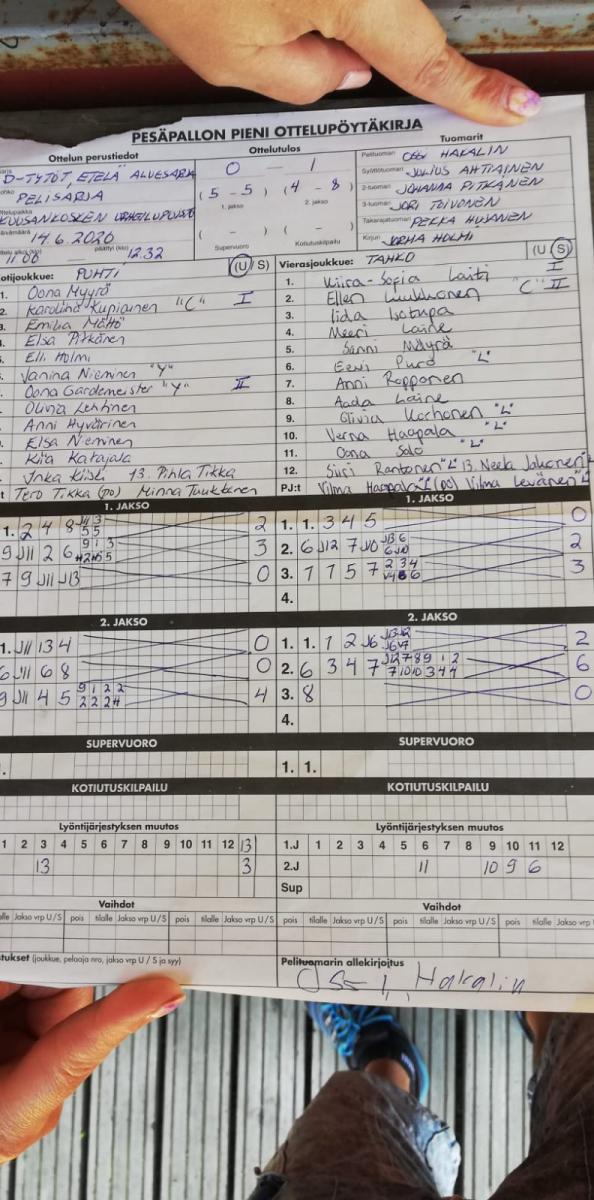 PESÄPALLON PIENI OTTELUPÖYTÄKIRJA
Ottelun perustiedot
Ottelutulos
Tuomarit
D-TYTÖT, ETELÄ ALUESARJA
PELISARJA
KUUSANKOSKEN URHEILUPUISTO
14.6.2020
11.00 — päättyi (klo) 12.32
0 — 1
(5 - 5) (4 - 8)
1. jakso 2. jakso
( - ) ( - )
Supervuoro Kotiutuskilpailu
Pelituomari Otto HAKALIN
Syöttötuomari JULIUS AHTIAINEN
2-tuomari JOHANNA PITKÄNEN
3-tuomari JORI TOIVONEN
Takarajatuomari PEKKA
Kirjuri JORMA HOLMI
otijoukkue: PUHTI (U/S)
1. Oona Myyrä
2. Karoliina Kupiainen "C" I
3. Emilia Mättö
4. Elsa Pitkänen
5. Elli Holmi
Janina Nieminen "Y"
Oona Gardemeister "Y" II
Olivia Lehtinen
Anni Hyvärinen
Elsa Nieminen
Kiia Katajala
Inka 13. Pihla Tikka
Tero Tikka (po) Minna Tuukkanen
Vierasjoukkue: TAHKO (U/S)
1. Kiira-Sofia Laiti I
2. Ellen Luukkonen "C" II
3. Iida Isotupa
4. Meeri Laine
5. Sanni Mäyrä
6. Eevi Puro "L"
7. Anni Ropponen
8. Aada Laine
9. Olivia Korhonen "L"
10. Verna Haapala "L"
11. Oona Salo "L"
12. Siiri Rantanen "L" 13. Neela Jakonen
PJ:t Vilma Haapala "L" (po) Vilma Levänen "L"
1. JAKSO
1. 2 4 8 J4 3 5 5 2
9 J11 2 6 9 1 3 3
7 9 J11 J13 0
1. JAKSO
1. 1. 3 4 5 0
2. 6 J12 7 J10 J13 6 6 J10 2
3. 1 1 5 7 2 3 4 3
4.
2. JAKSO
1. J11 13 4 0
6 J11 6 8 0
9 J11 4 5 9 1 2 2 2 2 2 4 4
2. JAKSO
1. 1. 1 2 J6 J13 J12 J6 J7 2
2. 6 3 4 7 J12 7 8 9 1 2 7 10 10 3 4 4 6
3. 8 0
4.
SUPERVUORO
SUPERVUORO
1. 1.
KOTIUTUSKILPAILU
KOTIUTUSKILPAILU
Lyöntijärjestyksen muutos
1 2 3 4 5 6 7 8 9 10 11 12 13
13 3
Lyöntijärjestyksen muutos
1.J 1 2 3 4 5 6 7 8 9 10 11 12
2.J 11 10 9 6
Sup
Vaihdot
Vaihdot
tilalle Jakso vrp U/S pois tilalle Jakso vrp U/S pois tilalle Jakso vrp U/S
pois tilalle Jakso vrp U/S pois tilalle Jakso vrp U/S pois tilalle Jakso vrp U/S
(joukkue, pelaaja nro, jakso vrp U / S ja syy)
Pelituomarin allekirjoitus
Hakalin